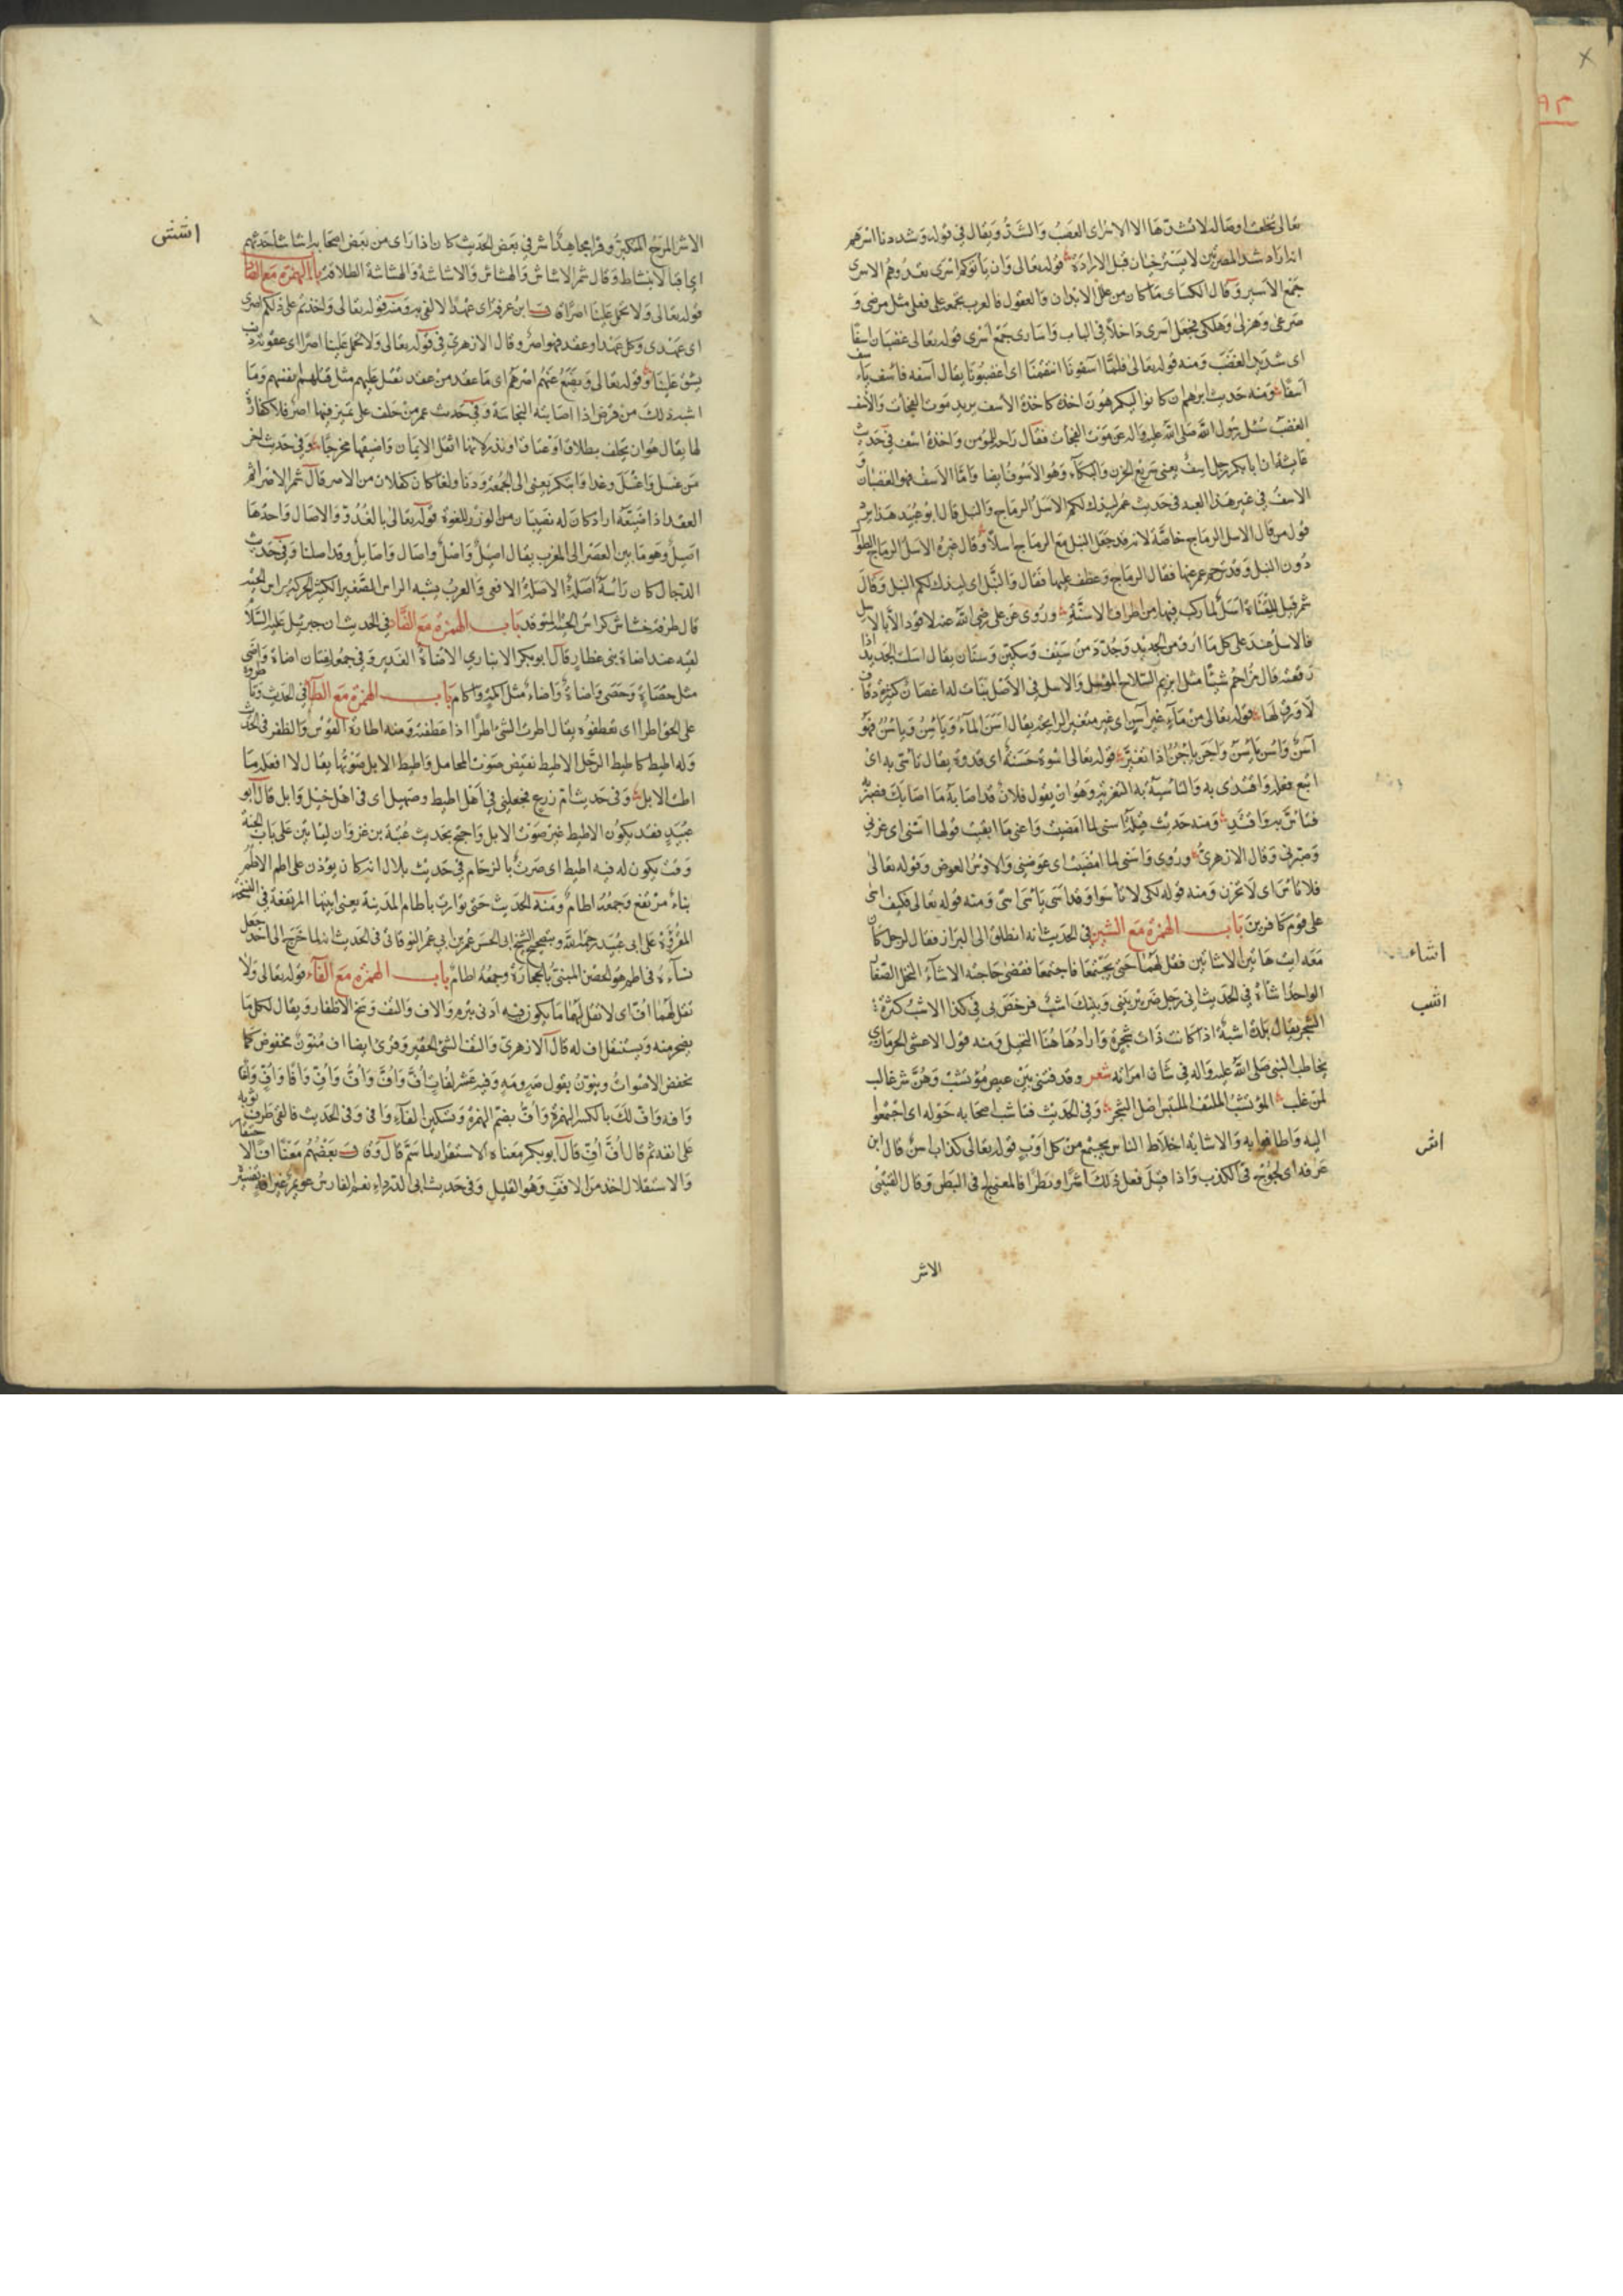 تعالى تخلف اوتعاله لا تشدقها الا الاسراى العقب والشد ويقال في قوله وشددنا اسرهم
اى اراد شد المصرتين لا يسترخيان قبل الارادة قوله تعالى وان ياتوكم اسرى تفدوهم الاسرى
جمع الاسير وقال الكساى ما كان من علل الابدان والعقول فالعرب تجمعه على فعلى مثل مرضى و
صرعى وهزلى وهلكى فجعل اسرى داخلا في الباب واسارى جمع اسرى قوله تعالى غضبان اسفا
اى شديد الغضب ومنه قوله تعالى فلما آسفونا انتقمنا اى اغضبونا يقال آسفه فاسف ياسف
اسفا ومنه حديث ابراهيم ان كانوا ليكرهون اخذة كاخذة الاسف يريد موت الفجأت والاسف
الغضب سئل رسول الله صلى الله عليه واله عن موت الفجأت فقال راحة للمؤمن واخذة اسف في حديث
عايشة ان ابا بكر رجل اسيف يعنى سريع الحزن والبكاء وهو الاسوف ايضا واما الاسف فهو الغضبان و
الاسف في غير هذا العبد في حديث عمر ليذك لكم الاسل الرماح والنبل قال ابو عبيد هذا يرد
قول من قال الاسل الرماح خاصة لانه قد جعل النبل مع الرماح اسلا وقال غيره الاسل الرماح الطوا
دون النبل وقد ترجم عمر عنها فقال الرماح وعطف عليها فقال والنبل اى ليذك لكم النبل وقال
شمر قيل للقناة اسل لما ركب فيها من اطراف الاسنة وروى عن على رضى الله عنه لا قود الا بالاسل
فالاسل عند على كل ما ارق من الحديد وحدد من سيف وسكين وسنان يقال اسلت الحديد اذا
رققته قال مزاحم شبئا مثل ابزيم السلاح المؤسل والاسل في الاصل نبات له اغصان كثيرة دقاق
لا ورق لها قوله تعالى من ماء غير آسن اى غير متغير الرايحة يقال اسن الماء وياسن وياسن فهو
آسن واسن ياسن واجن ياجن اذا تغير قوله تعالى اسوة حسنة اى قدوة يقال تأسى به اى
اتبع فعله واقتدى به والتاسية به التعزية وهو ان يقول فلان قد اصابه ما اصابك فصبر
فتأس به واقتد ومنه حديث قيلة اسنى لما امضيت واعنى ما ابقيت قولها اسنى اى عزنى
وصبرنى وقال الازهرى وروى واسنى لما امضيت اى عوضنى والاوس العوض وقوله تعالى
فلا تاس اى لا تحزن ومنه قوله لكى لا تاسوا وقد اسى ياسى اسى ومنه قوله تعالى فكيف اسى
على قوم كافرين باب الهمزة مع الشين في الحديث انه انطلق الى البراز فقال لرجل كان
معه ايت هاتين الاشاتين فقل لهما حتى يجتمعا فاجتمعا فقضى حاجته الاشاء النخل الصغار
الواحد اشاءة في الحديث انى رجل ضرير بينى وبينك اشب فرخص لى في كذا الاشب كثرة
الشجر يقال بلدة اشبة اذا كانت ذات شجر واراد ها هنا النخيل ومنه قول الاعشى الحرمازى
يخاطب النبى صلى الله عليه واله في شان امراته شعر وقد فتنى بين عيص مؤتشب وهن شر غالب
لمن غلب المؤتشب الملتف الملتبس اصل الشجر وفى الحديث فتاشب اصحابه حوله اى اجتمعوا
اليه واطافوا به والاشابة اخلاط الناس يجتمع من كل اوب قوله تعالى كذاب اشر قال ابن
عرفه اى لجوج في الكذب واذا قيل فعل ذلك اشرا وبطرا فالمعنى لج فى البطر وقال القتيبى
الاشر
اشاء
اشب
اشر
الاشر المرح المتكبر وقرا مجاهد اشر في بعض الحديث كان اذا راى من بعض اصحابه اشاشا حدثهم
اى اقبالا بنشاط وقال شمر الاشاش والهشاش والاشاشة والهشاشة الطلاقة باب الهمزة مع الصاد
قوله تعالى ولا تحمل علينا اصرا قال ابن عرفه اى عهدا لا نفى به ومنه قوله تعالى واخذتم على ذلكم اصرى
اى عهدى وكل عهد او عقد فهو اصر وقال الازهرى في قوله تعالى ولا تحمل علينا اصرا اى عقوبة ذنب
يشق علينا وقوله تعالى ويضع عنهم اصرهم اى ما عقد من عقد ثقيل عليهم مثل قتلهم انفسهم وما
اشبه ذلك من قرض اذا اصابته النجاسة وفى حديث عمر من حلف على يمين فيها اصر فلا كفارة
لها يقال هو ان يحلف بطلاق او عتاق او نذر لانها اثقل الايمان واضيقها مخرجا وفى حديث اخر
من غسل واغتسل وغدا وابتكر يعنى الى الجمعة ودنا ولغا كان له كفلان من الاصر قال شمر الاصر اثم
العقد اذا ضيعه اراد كان له نصيبان من الوزر للغوه قوله تعالى بالغدو والاصال واحدها
اصيل وهو ما بين العصر الى المغرب يقال اصيل واصل واصال واصايل وقد اصلنا وفى حديث
الدجال كان راسه اصلة الاصلة الافعى والعرب يشبه الراس الصغير الكثير الحركة براس الحية
قال طرفة خشاش كراس الحية المتوقد باب الهمزة مع الضاد في الحديث ان جبرئيل عليه السلام
لقيه عند اضاة بنى غفار قال ابو بكر الانبارى الاضاة الغدير وفى جمعه لغتان اضاة واضى
مثل حصاة وحصى واضاة واضاء مثل اكمة واكام باب الهمزة مع الطاء في الحديث وتاطروه
على الحق اطرا اى تعطفوه يقال اطرت الشئ اطرا اذا عطفته ومنه اطارة القوس والظفر فى الحديث
وله اطيط كاطيط الرحل الاطيط نقيض صوت المحامل واطيط الابل صوتها يقال لا افعله ما
اطت الابل وفى حديث ام زرع فجعلنى في اهل اطيط وصهيل اى فى اهل خيل وابل قال ابو
عبيد فقد يكون الاطيط غير صوت الابل واحتج بحديث عتبة بن غزوان لياتين على باب الجنة
وقت يكون له فيه اطيط اى صوت بالزحام في حديث بلال انه كان يؤذن على اطم الاطم
بناء مرتفع وجمعه اطام ومنه الحديث حتى توارت باطام المدينة يعنى ابنيتها المرتفعة في النسخة
المقروة على ابى عبيد رحمه الله وبتصحيح الشيخ ابى الحسن عمر بن ابى عمر النوقانى فى الحديث انه لما خرج الى احد جعل
نساءه فى اطم هو الحصن المبنى بالحجارة وجمعه اطام باب الهمزة مع الفاء قوله تعالى ولا
تقل لهما اف اى لا تقل لهما ما يكون فيه ادنى تبرم والاف والتف وسخ الاظفار ويقال لكل ما
يضجر منه ويستثقل اف له قال الازهرى والتف الشئ الحقير وقرئ ايضا اف منون مخفوض كما
تخفض الاصوات وينون يقول صه ومه وفيه عشر لغات اف واف واف واف وافا واف وافى
وافه واف لك بالكسر الهمزة واف بضم الهمزة وتسكين الفاء وافى وفى الحديث فالقى طرف ثوبه
على انفه ثم قال اف اف قال ابو بكر معناه الاستقذار لما شم قال وقال بعضهم معنا اف الاحتقار
والاستقلال اخذ من الافف وهو القليل وفى حديث ابى الدرداء نعم الفارس عويمر غير افة تفسير
اشش
٩٢